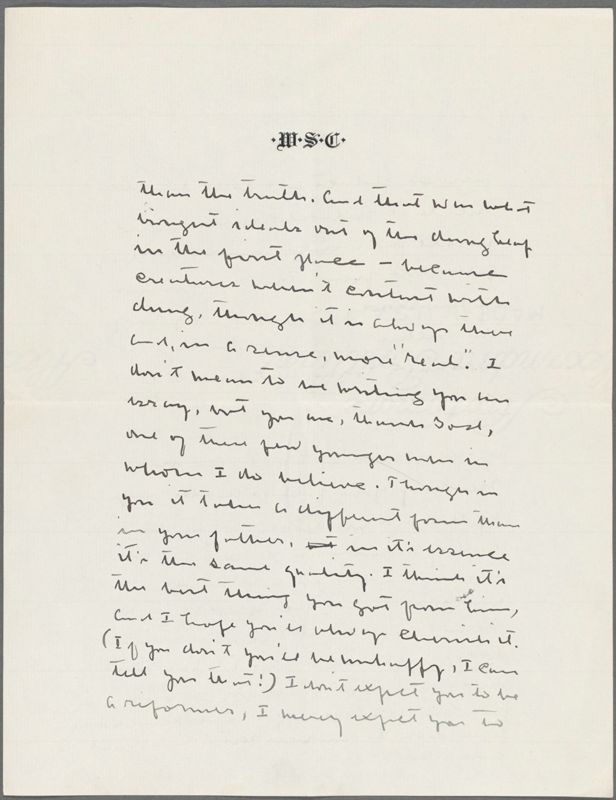 ·W·S·C·
than the truth. And that was what
brought ideals out of the dung heap
in the first place — because
creatures weren't content with
dung, though it is always there
and, in a sense, more "real". I
don't mean to be writing you an
essay, but you are, thank God,
one of those few younger men in
whom I do believe. Though in
you it takes a different form than
in your father, in it's essence
it's the same quality. I think it's
the best thing you got from him,
and I hope you'll always cherish it.
(If you don't you'll be unhappy, I can
tell you that!) I don't expect you to be
a reformer, I merely expect you to